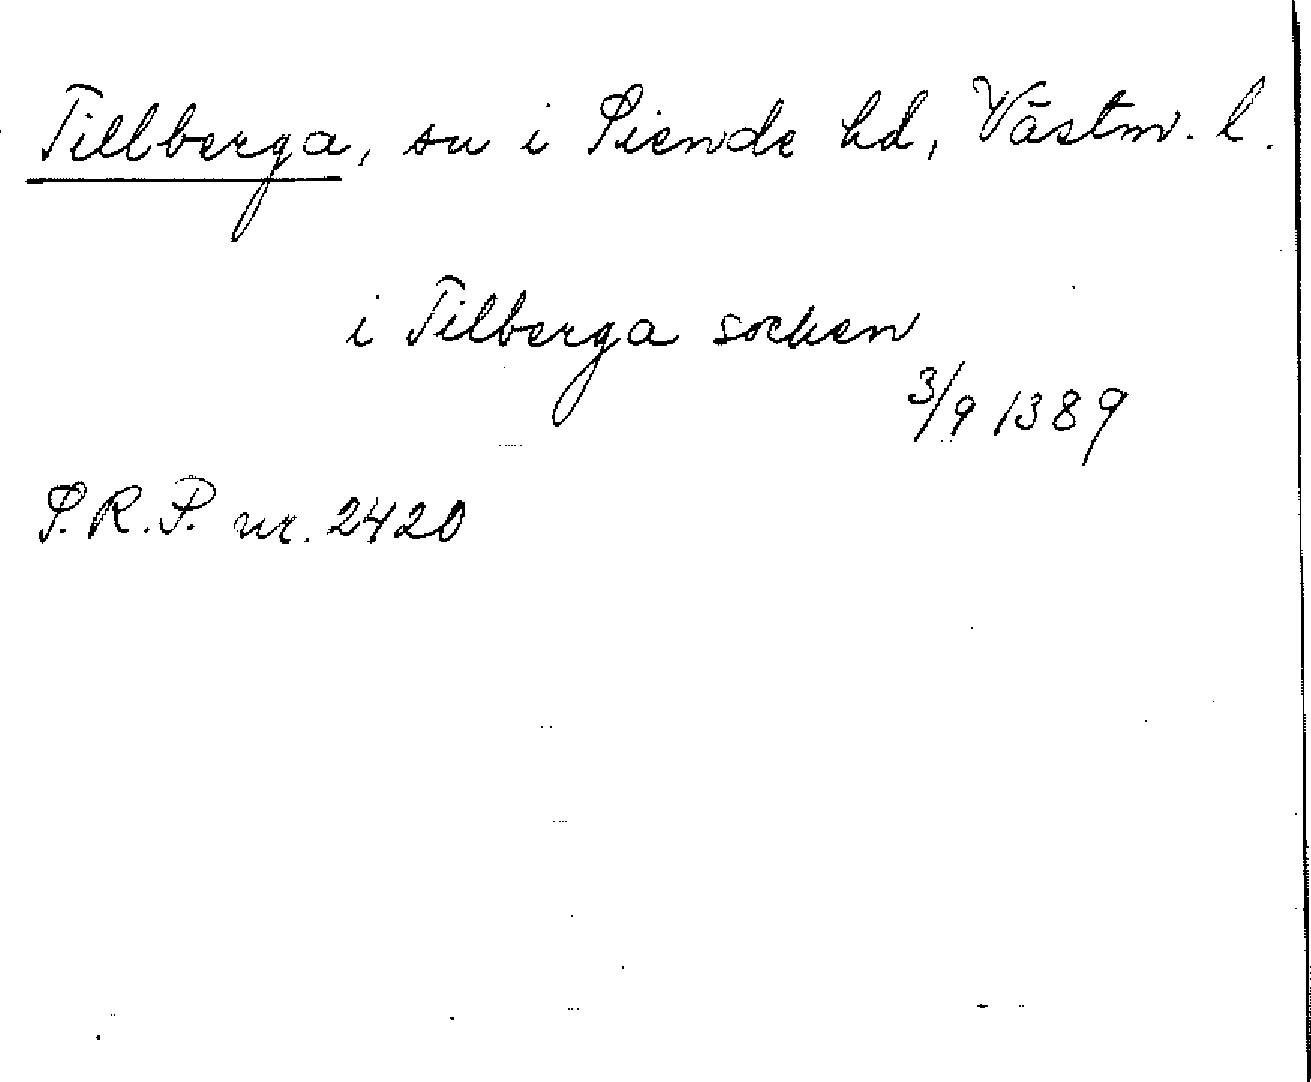 Tillberga, sn i Siende hd, Västm. l.
i Tilberga socken
3/9 1389
S.R.P. nr. 2420